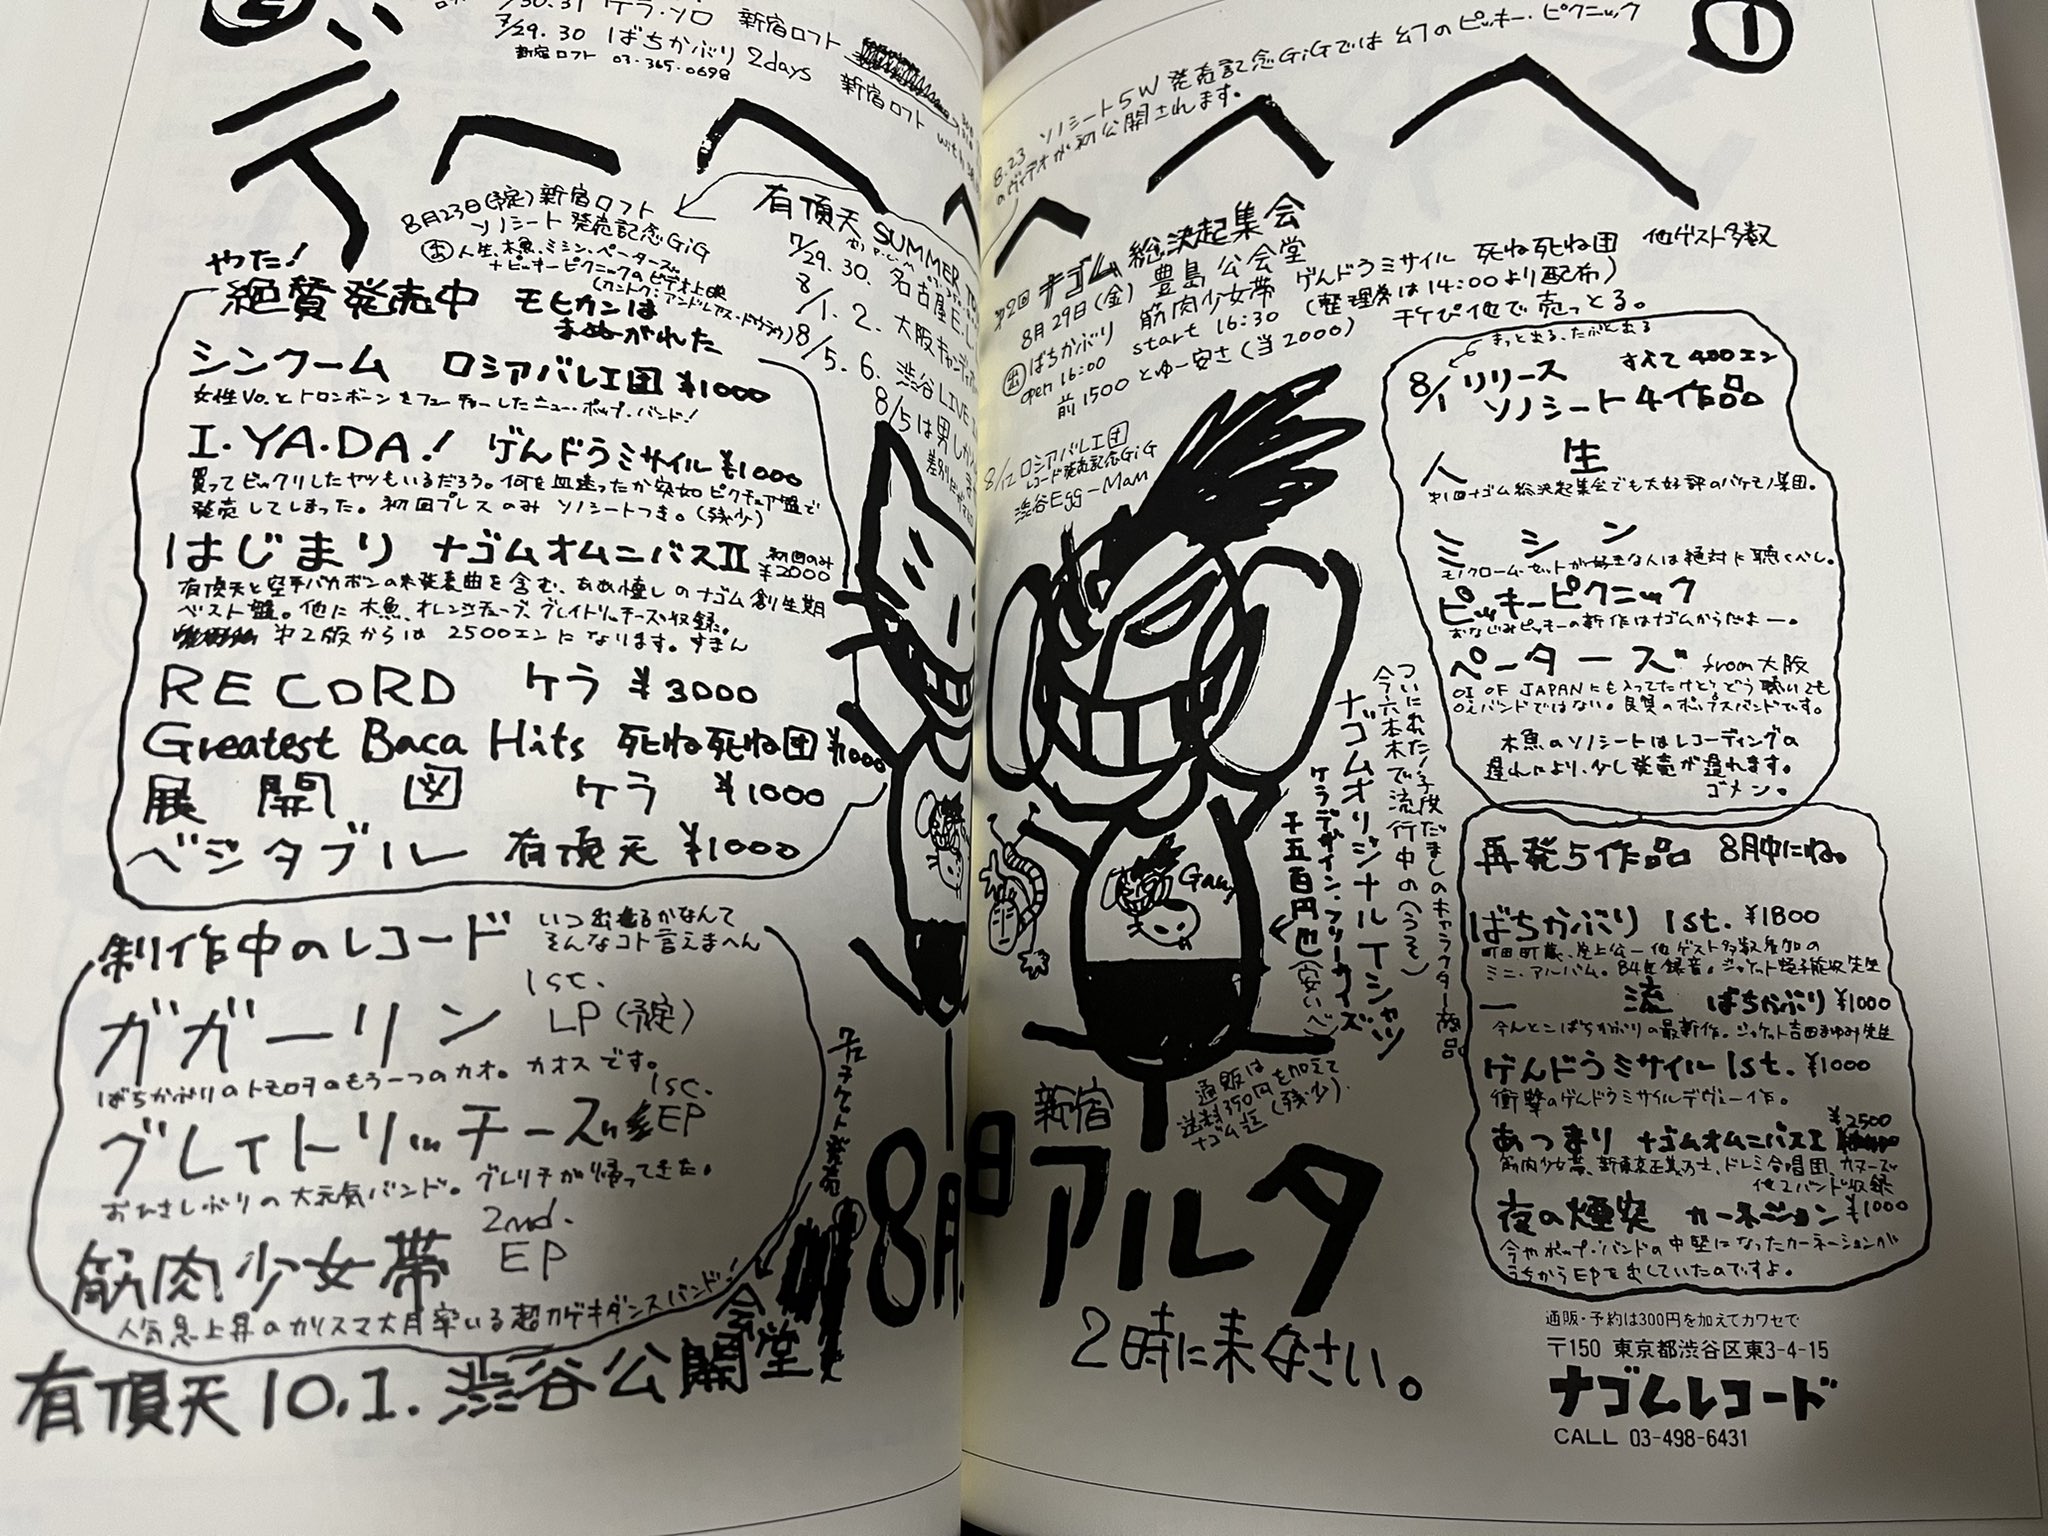 7/30.31 ケラ・ソロ 新宿ロフト
7/29.30 ばちかぶり 2days 新宿ロフト
新宿ロフト 03-365-0698
テへへへへへへ
8月23日(予定)新宿ロフト
ソノシート発売記念GiG
出 人生、木魚、ミシン、ペーターズ
+ピッキーピクニックのビデオ上映
(カントク:アンドレアス・ドウラウ)
有頂天 SUMMER
7/29.30. 名古屋E.L
8/1.2. 大阪キャンディ
8/5.6. 渋谷LIVE
8/5は男しか
やった!
絶賛発売中 モヒカンは
まぬがれた
シンクーム ロシアバレエ団 ¥1000
女性Vo.とトロンボーンをフューチャーしたニュー・ポップ・バンド!
I.YA.DA! げんドラミサイル ¥1000
買ってビックリしたヤツもいるだろう。何を血迷ったか突如ピクチュア盤で
発売してしまった。初回プレスのみソノシートつき。(残少)
はじまり ナゴムオムニバスⅡ 初回のみ
¥2000
有頂天と空手バカボンの未発表曲を含む、あの懐しのナゴム創生期
ベスト盤。他に木魚、オレンヂチューブ、グレイトリッチーズ収録。
第2版からは2500エンになります。すまん
RECORD ケラ ¥3000
Greatest Baca Hits 死ね死ね団 ¥1000
展開図 ケラ ¥1000
ベジタブル 有頂天 ¥1000
制作中のレコード いつ出るかなんて
そんなコト言えまへん
ガガーリン 1st.
LP(予定)
ばちかぶりのトモロヲのもう一つのカオ。カオスです。
グレイトリッチーズ 1st.
EP
おひさしぶりの大元気バンド。グレリチが帰ってきた。
筋肉少女帯 2nd.
EP
人気急上昇のカリスマ大月率いる超カゲキダンスバンド!
有頂天10.1.渋谷公開会堂
チケット発売
①
8.23 ソノシート5W発売記念GiGでは幻のピッキー・ピクニック
のヴィデオが初公開されます。
第2回 ナゴム総決起集会
8月29日(金) 豊島公会堂
出 ばちかぶり 筋肉少女帯 げんドラミサイル 死ね死ね団 他ゲスト多数
open 16:00 start 16:30 (整理券は14:00より配布)
前1500とゆー安さ(当2000) チケぴ他で売っとる。
8/12 ロシアバレエ団
レコード発売記念GiG
渋谷Egg-Man
もっと出る、たぶん出る
8/1 リリース すべて400エン
ソノシート4作品
人生
第1回ナゴム総決起集会でも大好評のバケモノ集団。
ミシン
モノクローム・セットが好きな人は絶対に聴くべし。
ピッキーピクニック
おなじみピッキーの新作はナゴムからだよー。
ペーターズ from大阪
OI OF JAPANにも入ってたけど、どう聴いても
Oiバンドではない。良質のポップスバンドです。
木魚のソノシートはレコーディングの
遅れにより、少し発売が遅れます。
ゴメン。
再発5作品 8月中にね。
ばちかぶり 1st. ¥1800
町田町蔵、巻上公一他ゲスト多数参加の
ミニ・アルバム。84年録音。ジャケット蛭子能収先生
一流 ばちかぶり ¥1000
今んとこばちかぶりの最新作。ジャケット吉田まゆみ先生
げんドラミサイル1st. ¥1000
衝撃のげんドラミサイルデヴュー作。
あつまり ナゴムオムニバスⅠ ¥2500
筋肉少女帯、新東京正義乃士、ドレミ合唱団、カヌーズ
他2バンド収録
夜の煙突 カーネーション ¥1000
今やポップ・バンドの中堅になったカーネーションが
うちからEPを出していたのですよ。
ついにれた!子供だましのキャラクター商品
今六本木で流行中の(うそ)
ナゴムオリジナルTシャツ
ケラデザイン、フリーサイズ
千五百円也(安いべ)
通販は
送料350円を加えて
ナゴム迄(残少)
Gauy
8月 日
新宿
アルタ
2時に来なさい。
通販・予約は300円を加えてカワセで
〒150 東京都渋谷区東3-4-15
ナゴムレコード
CALL 03-498-6431